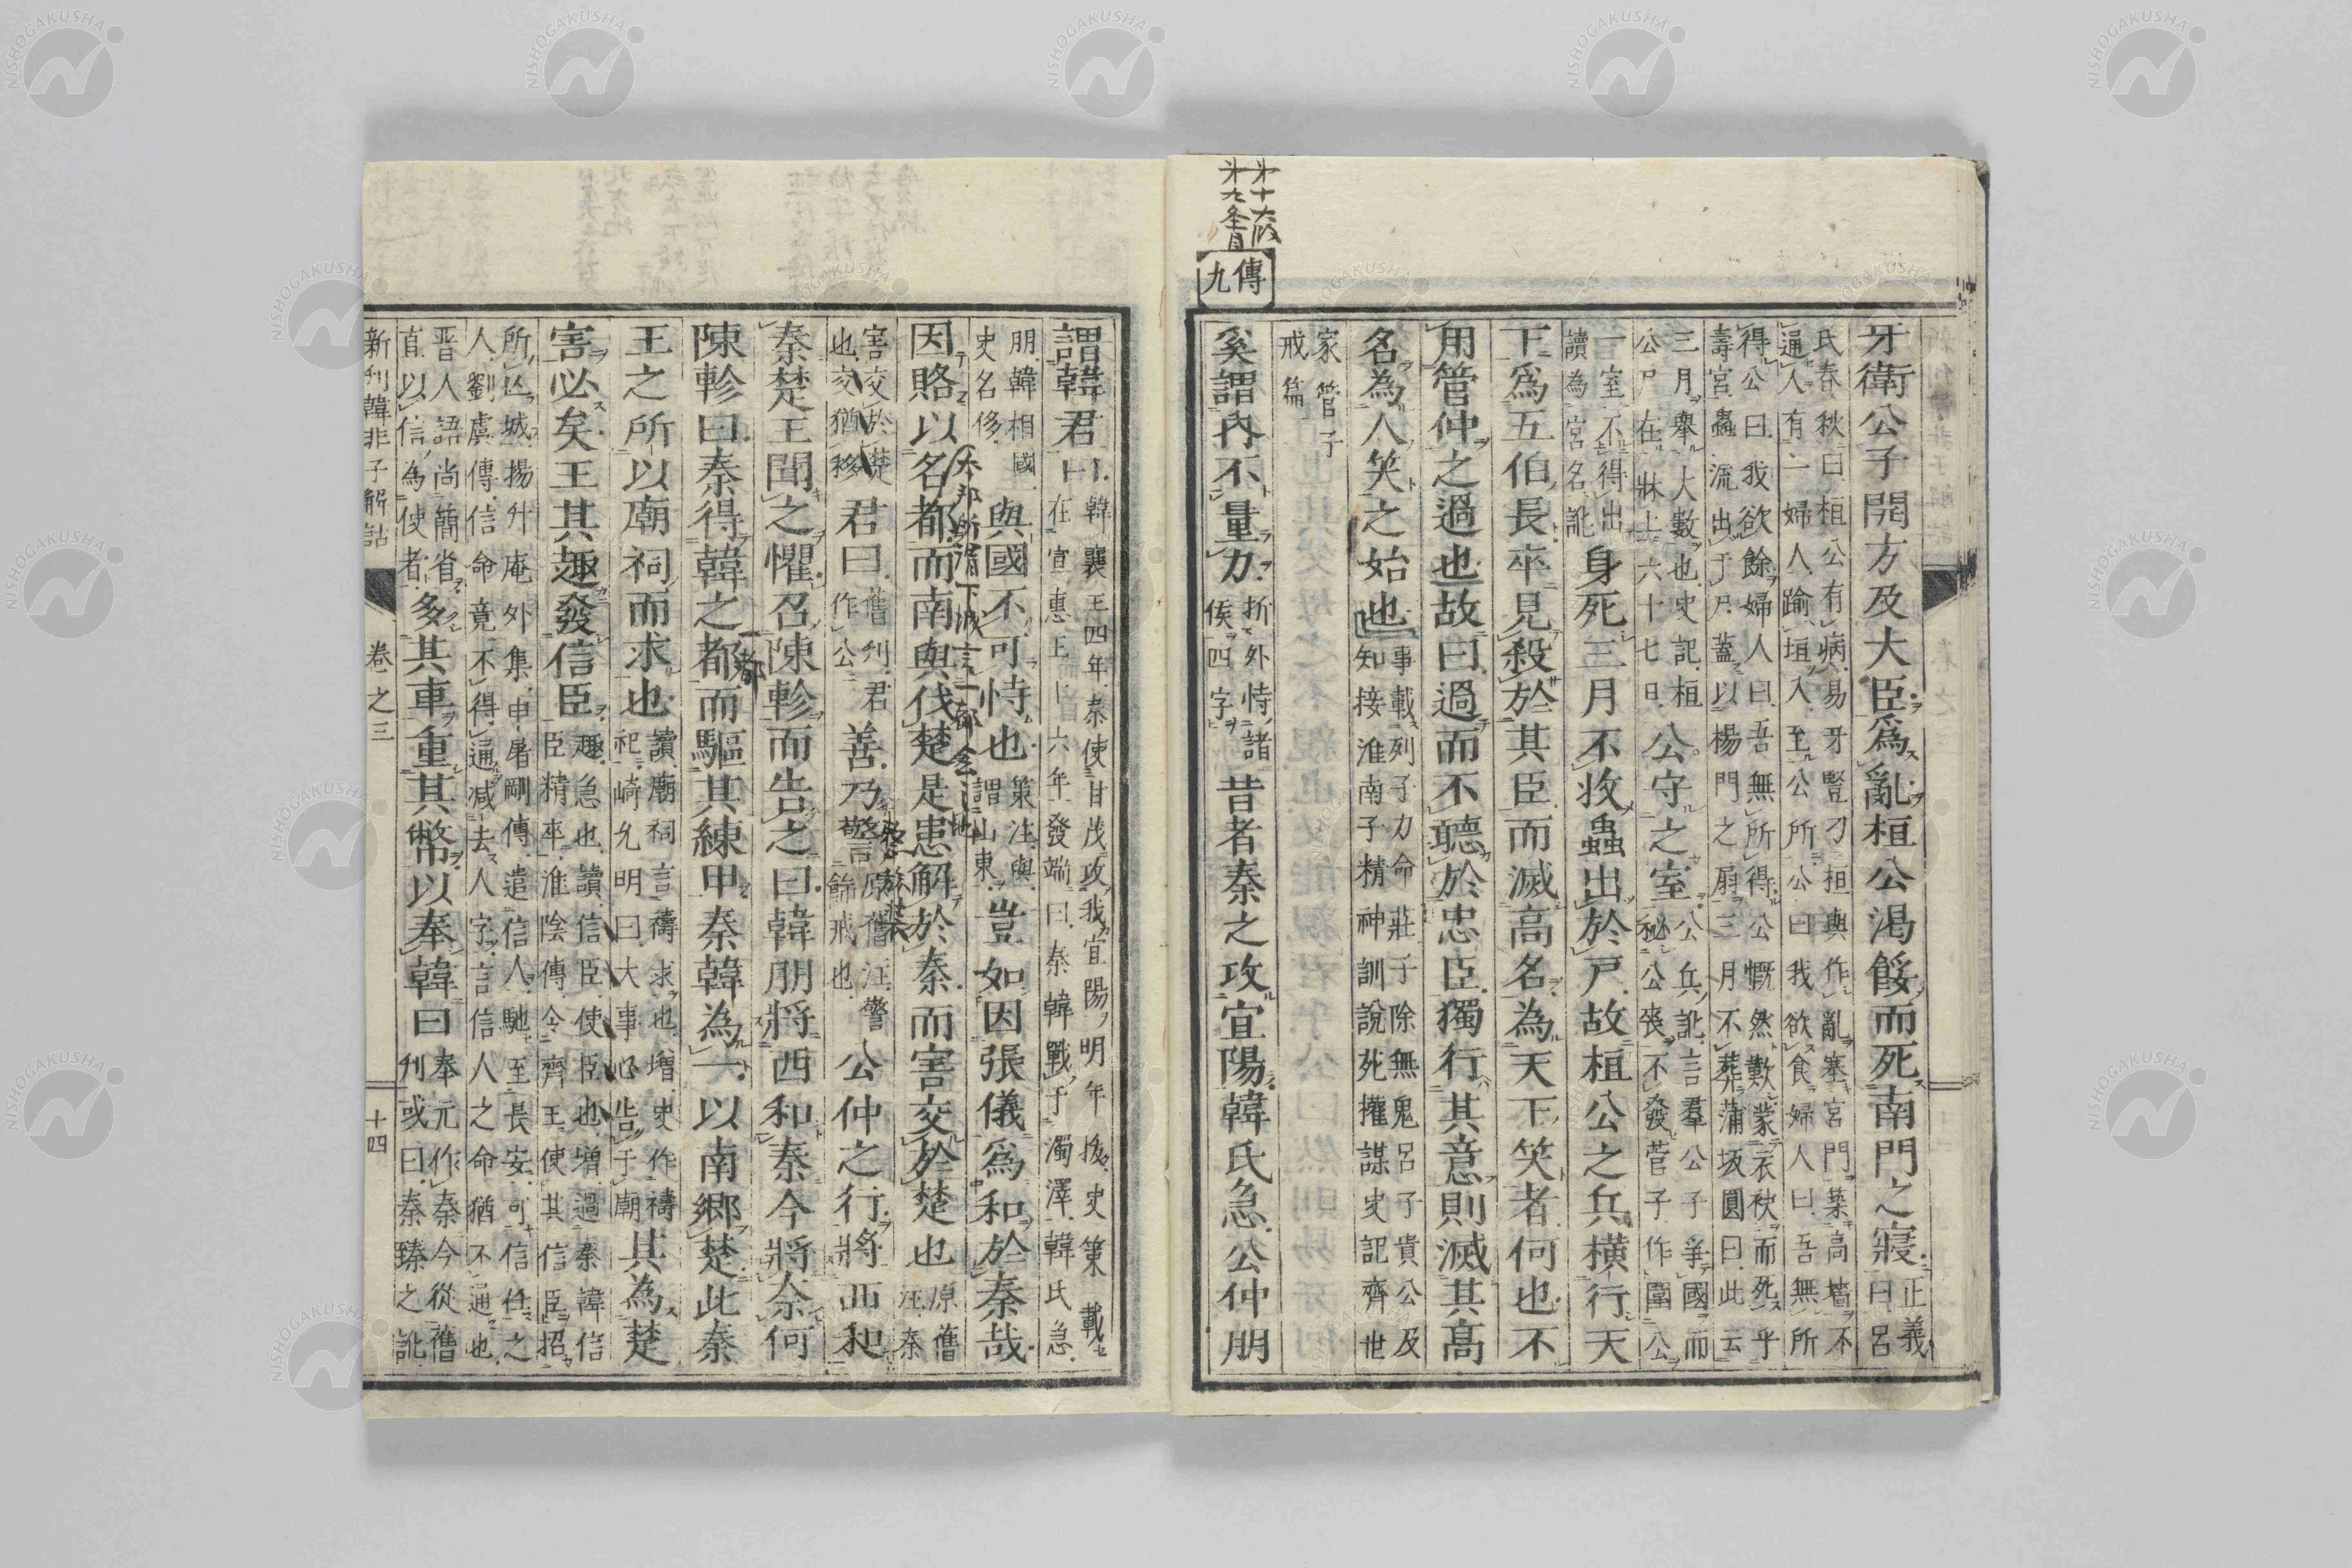 第十六段
第九条目
傳九
牙衛公子開方及大臣爲亂桓公渴餒而死南門之寢正義曰呂
氏春秋曰桓公有病易牙豎刁桓與作亂塞宮門築高墻不
通人有一婦人踰垣入至公所公曰我欲食婦人曰吾無所
得公曰我欲飲婦人曰吾無所得公慨然歎蒙衣袂而死乎
壽宮蟲流出于戸蓋以楊門之扇三月不葬蒲坂圓曰此云
三月舉大數也史記桓
公尸在牀上六十七日公守之室公兵訛言羣公子爭國而
秘公喪不發菅子作圍公
一室不得出
讀為宮名訛身死三月不收蟲出於戸故桓公之兵横行天
下爲五伯長卒見殺於其臣而滅高名為天下笑者何也不
用管仲之過也故曰過而不聽於忠臣獨行其意則滅其高
名為人笑之始也事載列子力命莊子除無鬼呂子貴公及
知接淮南子精神訓說死權謀史記齊世
家管子
戒篇
奚謂内不量力折外恃諸
侯四字昔者秦之攻宜陽韓氏急公仲朋
謂韓君曰韓襄王四年秦使甘茂攻我宜陽明年拔史策載
在宣惠王十六年發端曰秦韓戰于濁澤韓氏急
朋韓相國
史名侈與國不可恃也策注與
謂山東豈如因張儀爲和於秦哉
因賂以名都而南與伐楚是患解於秦而害交於楚也原舊注秦
害交於楚
也交猶移君曰舊刊君
作公善乃警原舊注警
飾戒也公仲之行將西和
秦楚王聞之懼召陳軫而告之曰韓朋將西和秦今將奈何
陳軫曰秦得韓之都一而驅其練甲秦韓為一以南鄉楚此秦
王之所以廟祠而求也讀廟祠言禱求也增史作禱
祀崎允明曰大事必告于廟其為楚
害必矣王其趣發信臣趣急也讀信臣使臣也增過秦諱信
臣精卒淮陰傳令齊王使其信臣招
所亡城揚升庵外集申屠剛傳遣信人馳至長安可信任之
人劉虞傳信命竟不得通減去人字言信人之命猶不通也
晋人語尚簡省
直以信為使者多其車重其幣以奉韓曰奉元作秦今從舊
刊或曰秦臻之訛
新刊韓非子解詁
卷之三
十四